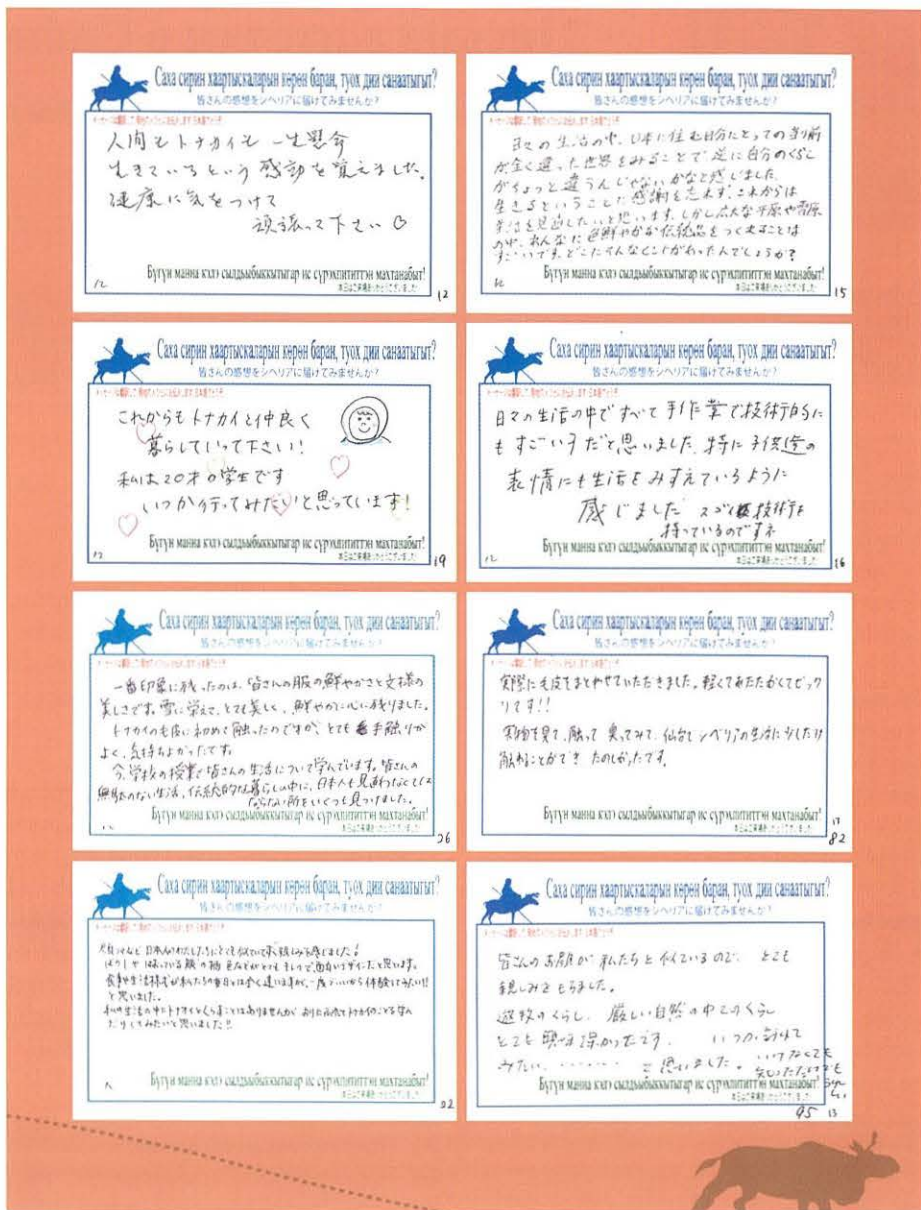 Саха сирин хаартыскаларын көрөн баран, туох дии санаатыгыт?
皆さんの感想をシベリアに届けてみませんか？
人間もトナカイも一生懸命
生きているという感動を覚えました。
健康に気をつけて
頑張って下さい
Бүгүн манна кэлэ сылдьыбыккытыгар ис сүрэхпититтэн махтанабыт!
本日はご来場ありがとうございました!
12
12
Саха сирин хаартыскаларын көрөн баран, туох дии санаатыгыт?
皆さんの感想をシベリアに届けてみませんか？
日々の生活の中、日本に住む自分にとっての当り前
が全く違った世界をみることで逆に自分のくらし
がちょっと違うんじゃないかなと感じました。
生きるということに感謝を忘れず、これからは
生活を見直したいと思います。しかし広大な平原や雪原
の中、あんなに色鮮やかな伝統品をつくれることは
すごいです。どこにそんなヒントがあったんでしょうか？
Бүгүн манна кэлэ сылдьыбыккытыгар ис сүрэхпититтэн махтанабыт!
本日はご来場ありがとうございました!
12
15
Саха сирин хаартыскаларын көрөн баран, туох дии санаатыгыт?
皆さんの感想をシベリアに届けてみませんか？
これからもトナカイと仲良く
暮らしていって下さい！
私は20才の学生です
いつか行ってみたいと思っています！
Бүгүн манна кэлэ сылдьыбыккытыгар ис сүрэхпититтэн махтанабыт!
本日はご来場ありがとうございました!
12
19
Саха сирин хаартыскаларын көрөн баран, туох дии санаатыгыт?
皆さんの感想をシベリアに届けてみませんか？
日々の生活の中ですべて手作業で技術的に
もすごい方だと思いました。特に子供達の
表情にも生活をみすえているように
感じました スゴイ技術を
持っているのですネ
Бүгүн манна кэлэ сылдьыбыккытыгар ис сүрэхпититтэн махтанабыт!
本日はご来場ありがとうございました!
12
16
Саха сирин хаартыскаларын көрөн баран, туох дии санаатыгыт?
皆さんの感想をシベリアに届けてみませんか？
一番印象に残ったのは、皆さんの服の鮮やかさと文様の
美しさです。雪に栄えて、とても美しく、鮮やかに心に残りました。
トナカイの毛皮に初めて触ったのですが、とても手触りが
よく、気持ちよかったです。
今、学校の授業で皆さんの生活について学んでいます。皆さんの
無駄のない生活、伝統的な暮らしの中に、日本人も見直わなくては
ならない所をいくつも見つけました。
Бүгүн манна кэлэ сылдьыбыккытыгар ис сүрэхпититтэн махтанабыт!
本日はご来場ありがとうございました!
12
26
Саха сирин хаартыскаларын көрөн баран, туох дии санаатыгыт?
皆さんの感想をシベリアに届けてみませんか？
実際に毛皮をまとわせていただきました。軽くてあたたかくてビック
リです!!
実物を見て、触って 臭ってみて、仙台でシベリアの生活に少しだけ
触れることができ たのしかったです。
Бүгүн манна кэлэ сылдьыбыккытыгар ис сүрэхпититтэн махтанабыт!
本日はご来場ありがとうございました!
17
82
Саха сирин хаартыскаларын көрөн баран, туох дии санаатыгыт?
皆さんの感想をシベリアに届けてみませんか？
日本人のわたしたちにとても似ていて 親しみを感じました!
ぼうしや はおっている服の柄 色などがとても きれいで、面白いデザインだと思います。
食事や生活様式が私たちの毎日とは全く違いますが、一度でいいから体験してみたい!!
と思いました。
私の生活の中にトナカイとくらすことはありませんが トナカイのことも学ん
だりしてみたいと思いました!!
Бүгүн манна кэлэ сылдьыбыккытыгар ис сүрэхпититтэн махтанабыт!
本日はご来場ありがとうございました!
22
Саха сирин хаартыскаларын көрөн баран, туох дии санаатыгыт?
皆さんの感想をシベリアに届けてみませんか？
皆さんのお顔が私たちと似ているので、とても
親しみをもちました。
遊牧のくらし、厳しい自然の中でのくらし
とても興味深かったです。 いつか訪れて
みたい………と思いました。いけなくても
知っただけでも
うれしい
Бүгүн манна кэлэ сылдьыбыккытыгар ис сүрэхпититтэн махтанабыт!
本日はご来場ありがとうございました!
95 13